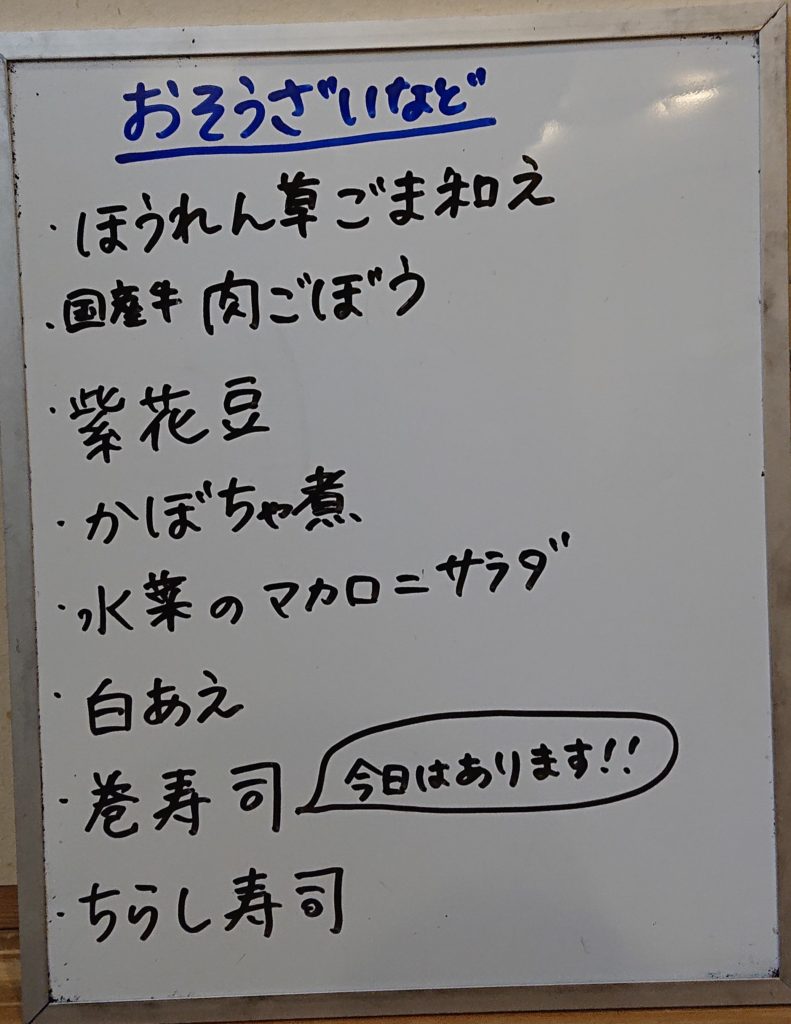 おそうざいなど
・ほうれん草ごま和え
・国産牛 肉ごぼう
・紫花豆
・かぼちゃ煮
・水菜のマカロニサラダ
・白あえ
・巻寿司 今日はあります!!
・ちらし寿司